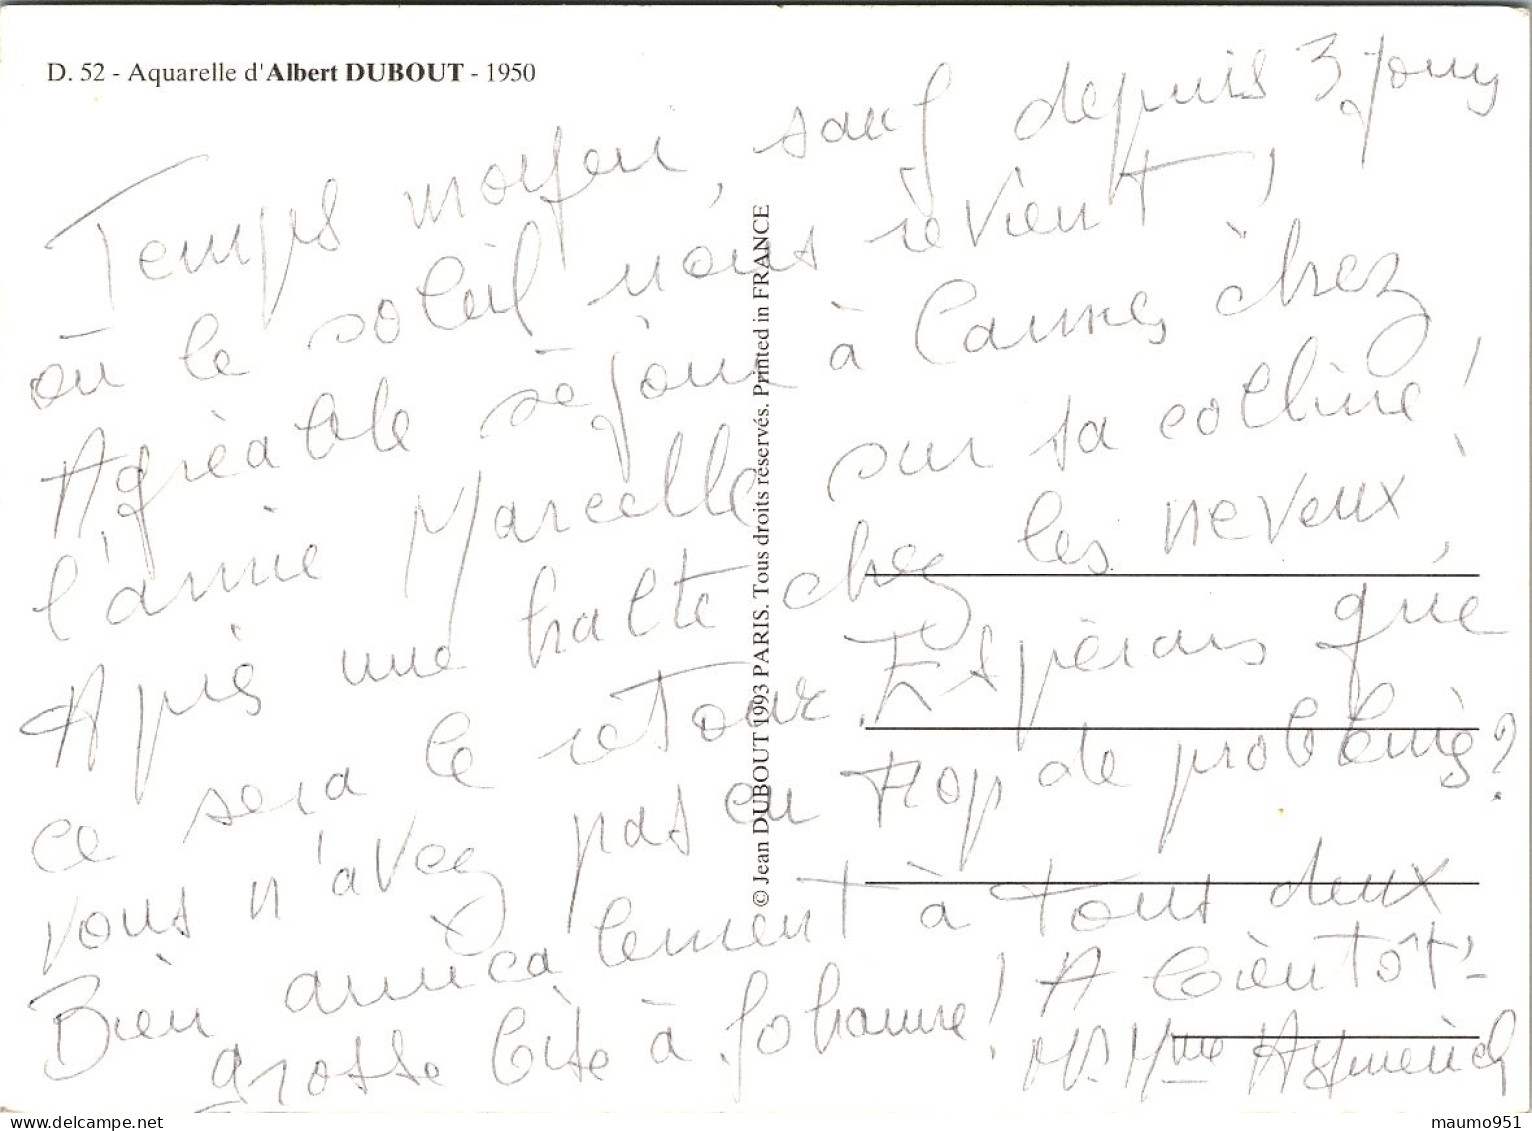 D. 52 - Aquarelle d'Albert DUBOUT - 1950
Temps moyen, sauf depuis 3 jours
où le soleil nous revient,
Agréable séjour à Cannes, chez
l'amie Marcelle sur sa colline !
Après une halte chez les neveux,
ce sera le retour. Espérons que
vous n'avez pas eu trop de problèmes ?
Bien amicalement à tous deux
grosse bise à Johanne ! A bientôt -
Mr Mme Aymerich
© Jean DUBOUT 1993 PARIS. Tous droits réservés. Printed in FRANCE
maumo951